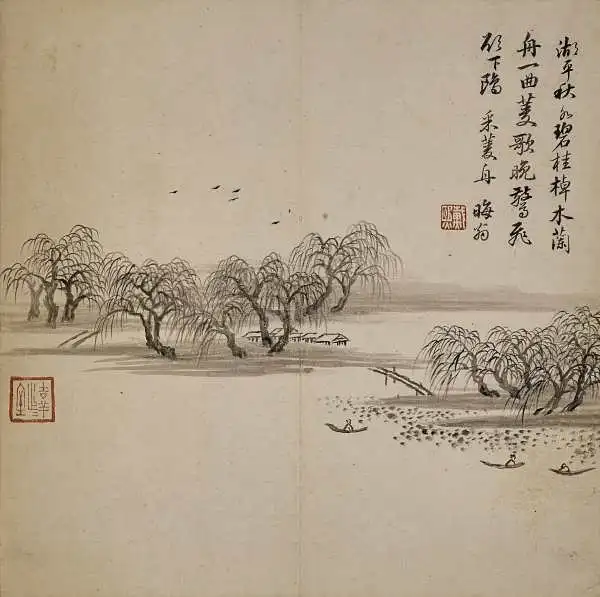 湖平秋水碧桂棹木蘭
舟一曲菱歌晚驚飛
欲下鷗 采菱舟 晦翁